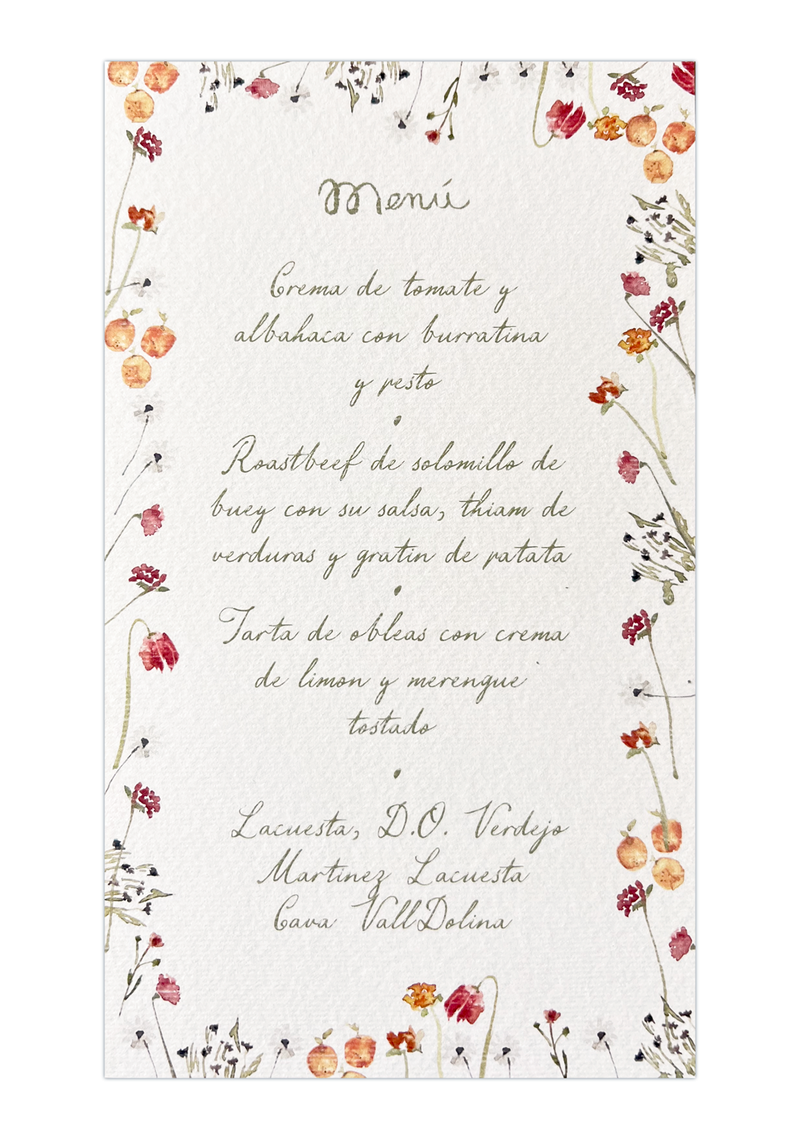 Menú
Crema de tomate y
albahaca con burratina
y pesto
Roastbeef de solomillo de
buey con su salsa, thiam de
verduras y gratin de patata
Tarta de obleas con crema
de limon y merengue
tostado
Lacuesta, D.O. Verdejo
Martinez Lacuesta
Cava VallDolina